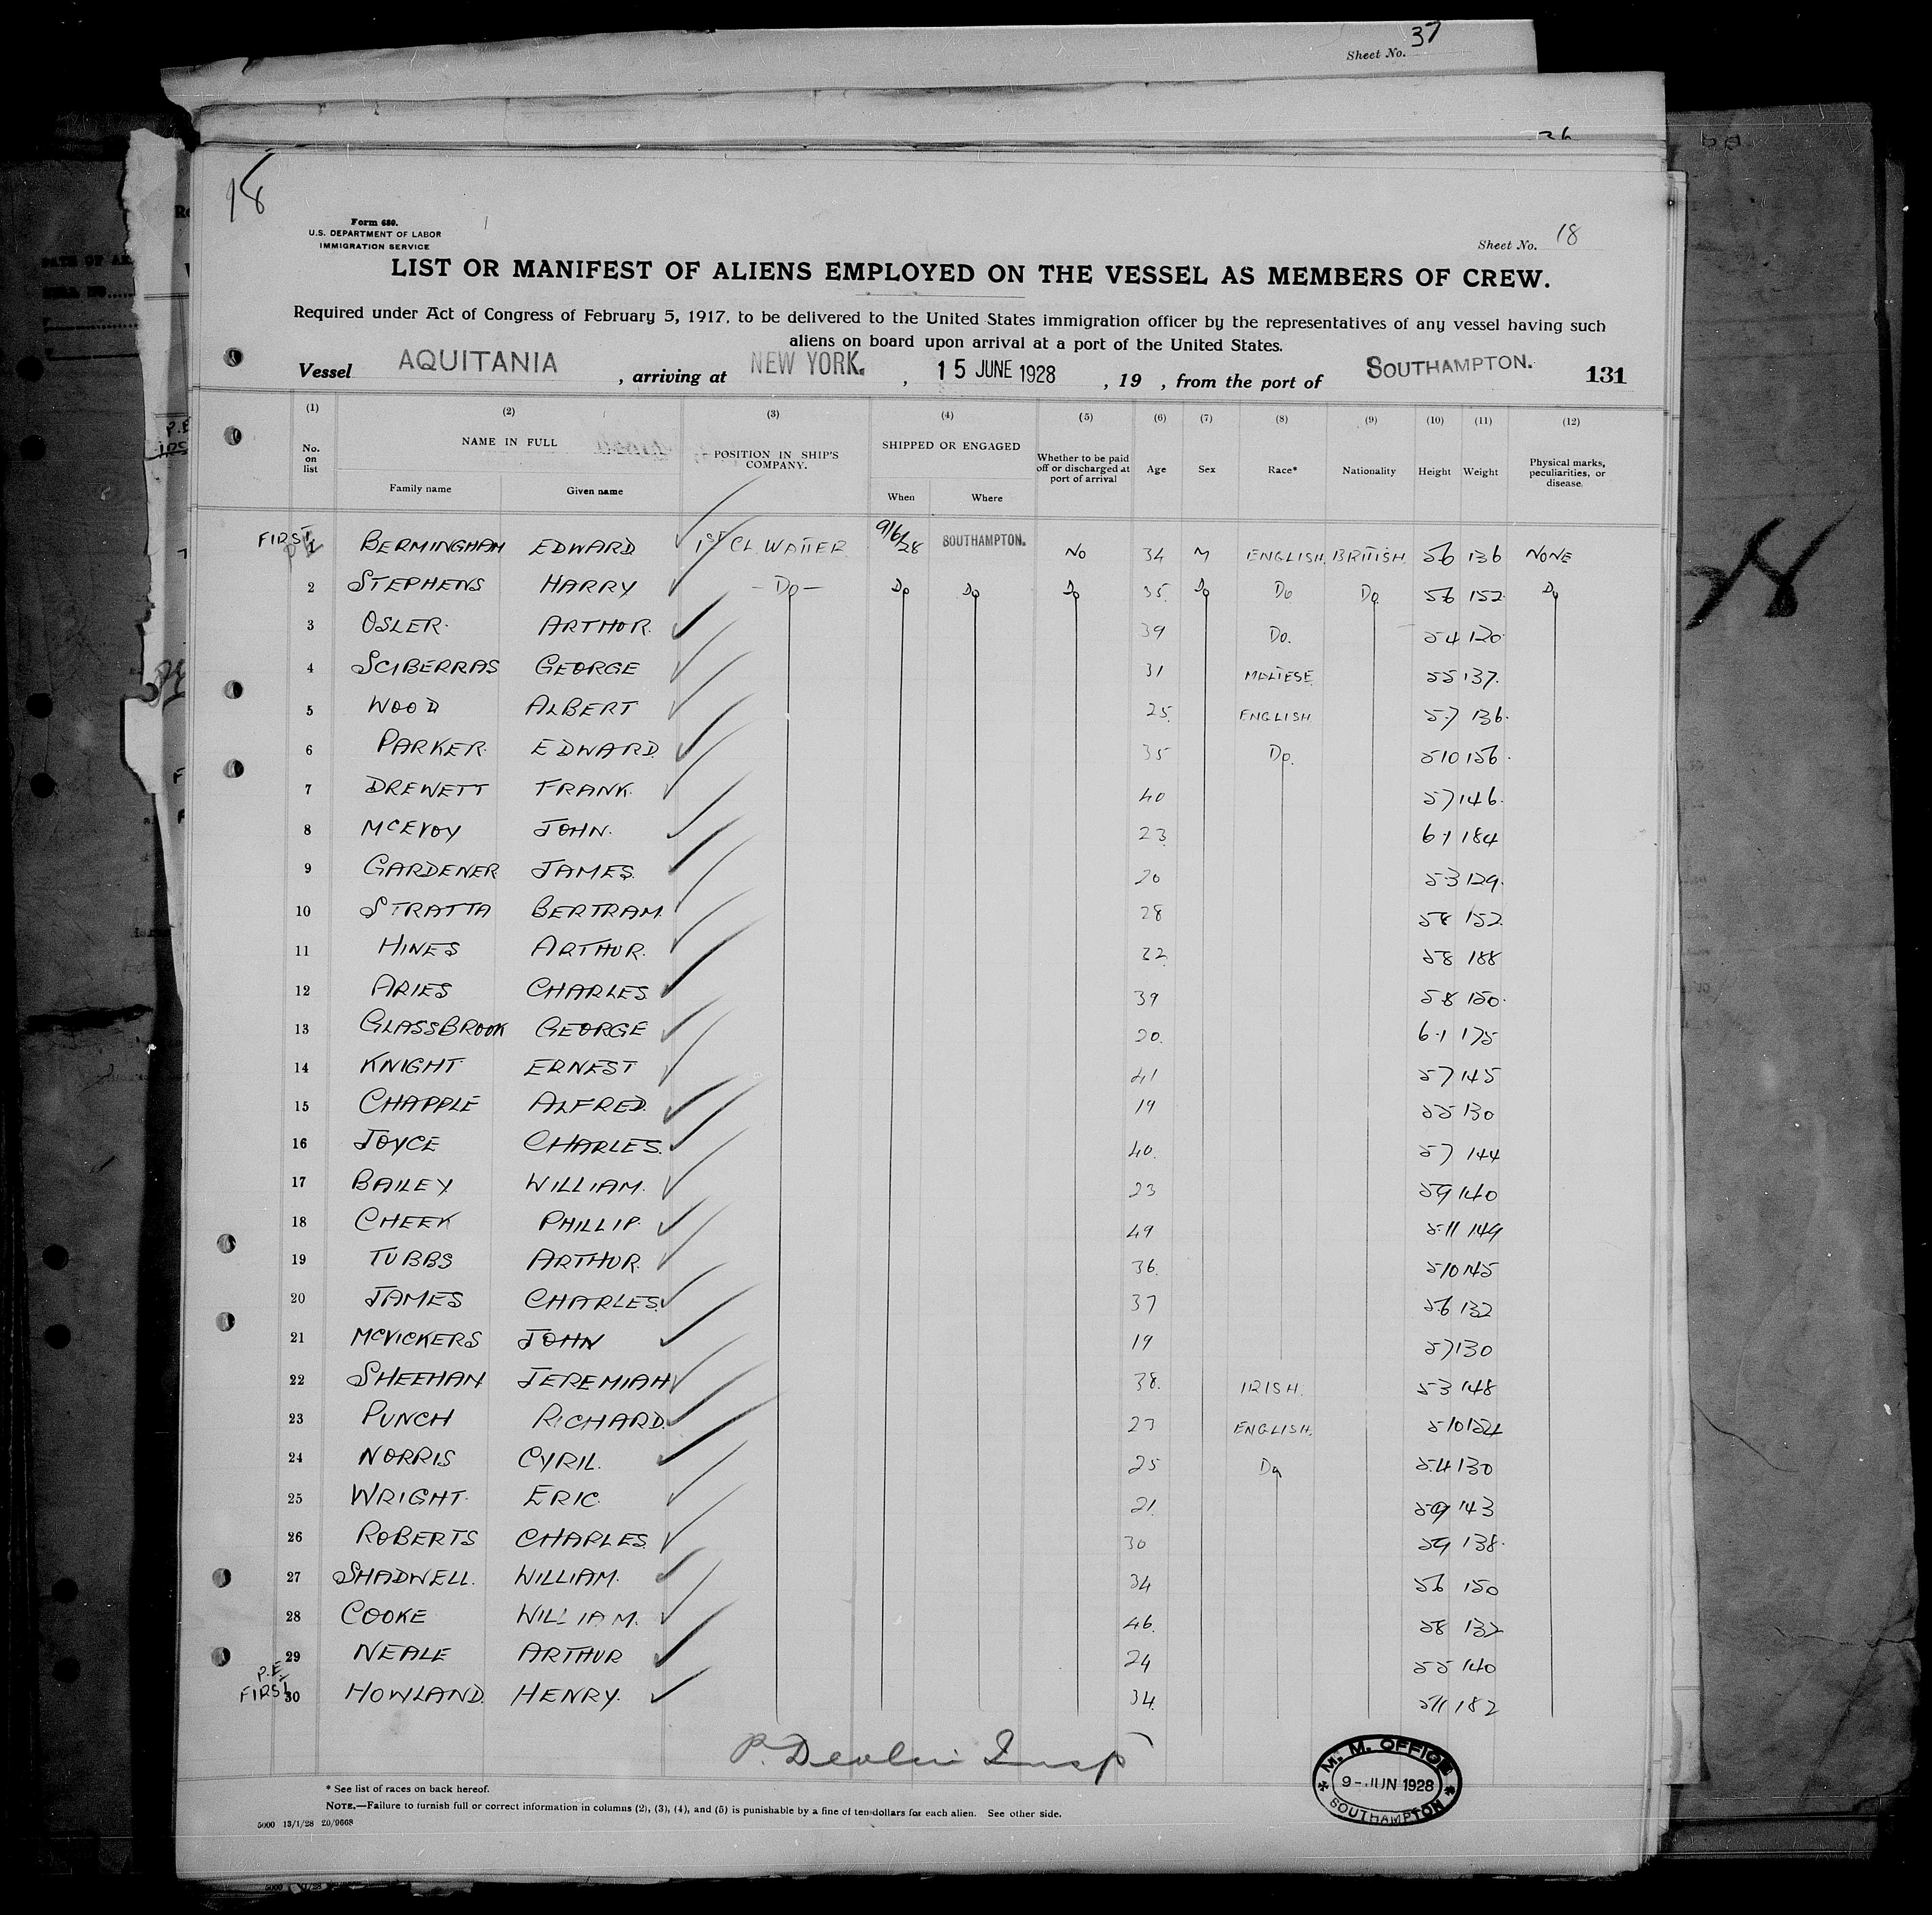 Sheet No. 37
26
18
Form 680.
U.S. DEPARTMENT OF LABOR
IMMIGRATION SERVICE
Sheet No. 18
LIST OR MANIFEST OF ALIENS EMPLOYED ON THE VESSEL AS MEMBERS OF CREW.
Required under Act of Congress of February 5, 1917, to be delivered to the United States immigration officer by the representatives of any vessel having such
aliens on board upon arrival at a port of the United States.
Vessel AQUITANIA , arriving at NEW YORK. , 15 JUNE 1928 , 19 , from the port of SOUTHAMPTON. 131
(1) (2) (3) (4) (5) (6) (7) (8) (9) (10) (11) (12)
No. on list NAME IN FULL Family name Given name POSITION IN SHIP'S COMPANY. SHIPPED OR ENGAGED When Where Whether to be paid off or discharged at port of arrival Age Sex Race* Nationality Height Weight Physical marks, peculiarities, or disease.
FIRST 1 BERMINGHAM EDWARD 1ST CL. WAITER 9/6/28 SOUTHAMPTON. NO 34 M ENGLISH. BRITISH. 56 136 NONE
2 STEPHENS HARRY - Do - Do Do Do 35 Do Do Do 56 152 Do
3 OSLER ARTHOR. 39 Do. 54 120
4 SCIBERRAS GEORGE 31 MALTESE. 55 137.
5 WOOD ALBERT 25 ENGLISH 5.7 136.
6 PARKER EDWARD. 35 Do. 510 156.
7 DREWETT FRANK. 40 57 146.
8 McEVOY JOHN. 23 6.1 184
9 GARDENER JAMES. 20 5.3 129.
10 STRATTA BERTRAM. 28 58 152.
11 HINES ARTHUR. 32 58 188
12 ARIES CHARLES. 39 58 150.
13 GLASSBROOK GEORGE 20. 6.1 175
14 KNIGHT ERNEST 41 57 145
15 CHAPPLE ALFRED. 19 55 130
16 JOYCE CHARLES. 40. 57 144
17 BAILEY WILLIAM. 23 59 140
18 CHEEK PHILLIP. 49 5.11 149
19 TUBBS ARTHUR. 36. 510 145
20 JAMES CHARLES. 37 56 132
21 McVICKERS JOHN 19 57 130
22 SHEEHAN JEREMIAH 38. IRISH. 53 148
23 PUNCH RICHARD. 23 ENGLISH. 510 154
24 NORRIS CYRIL. 25 Do 5.4 130
25 WRIGHT. ERIC. 21. 59 143
26 ROBERTS CHARLES. 30 59 138.
27 SHADWELL. WILLIAM. 34 56 150
28 COOKE WILLIAM. 46. 58 132
29 NEALE ARTHUR 24 55 140
P.E. FIRST 30 HOWLAND. HENRY. 34. 511 182
P. Devlin Insp
* See list of races on back hereof.
NOTE.—Failure to furnish full or correct information in columns (2), (3), (4), and (5) is punishable by a fine of ten dollars for each alien. See other side.
5000 13/1/28 20/9668
M. M. OFFICE
9 - JUN 1928
SOUTHAMPTON